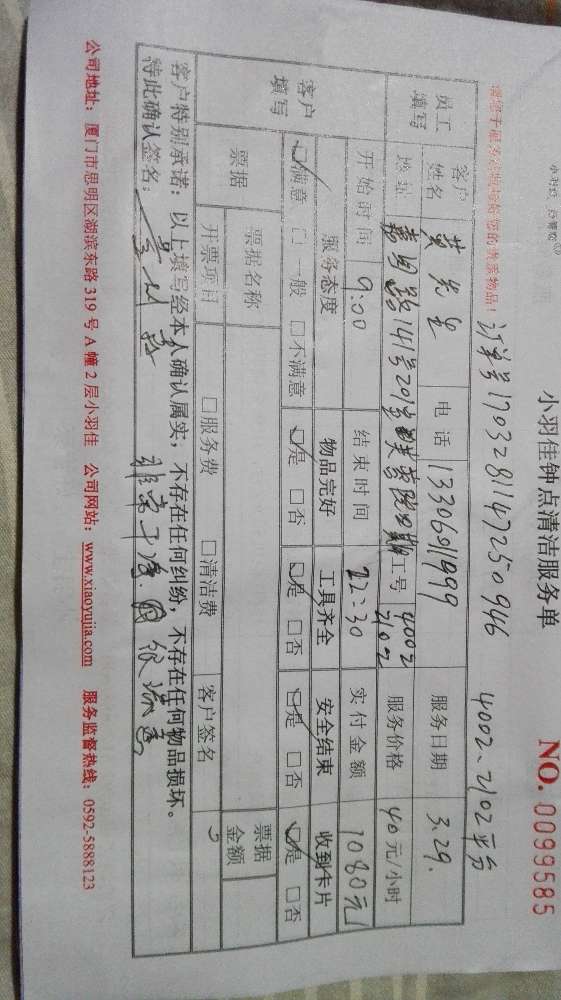 小羽佳钟点清洁服务单
NO. 0099585
订单号1703281147250946 4002、2102平台
员工填写
客户姓名 黄先生 电话 13306911999 服务日期 3.29.
地址 嘉园路141号201 工号 4002 2102 服务价格 40元/小时
客户填写
开始时间 9:00 结束时间 22:30 实付金额 1080元
服务态度 物品完好 工具齐全 安全结束 收到卡片
☑满意 □一般 □不满意 ☑是 □否 ☑是 □否 ☑是 □否 ☑是 □否
票据 票据名称 票据金额
开票项目 □服务费 □清洁费 客户签名
客户特别承诺：以上填写经本人确认属实，不存在任何纠纷，不存在任何物品损坏。
特此确认签名： 非常干净
公司地址：厦门市思明区湖滨东路 319 号 A 幢 2 层小羽佳 公司网站：www.xiaoyujia.com 服务监督热线：0592-5888123